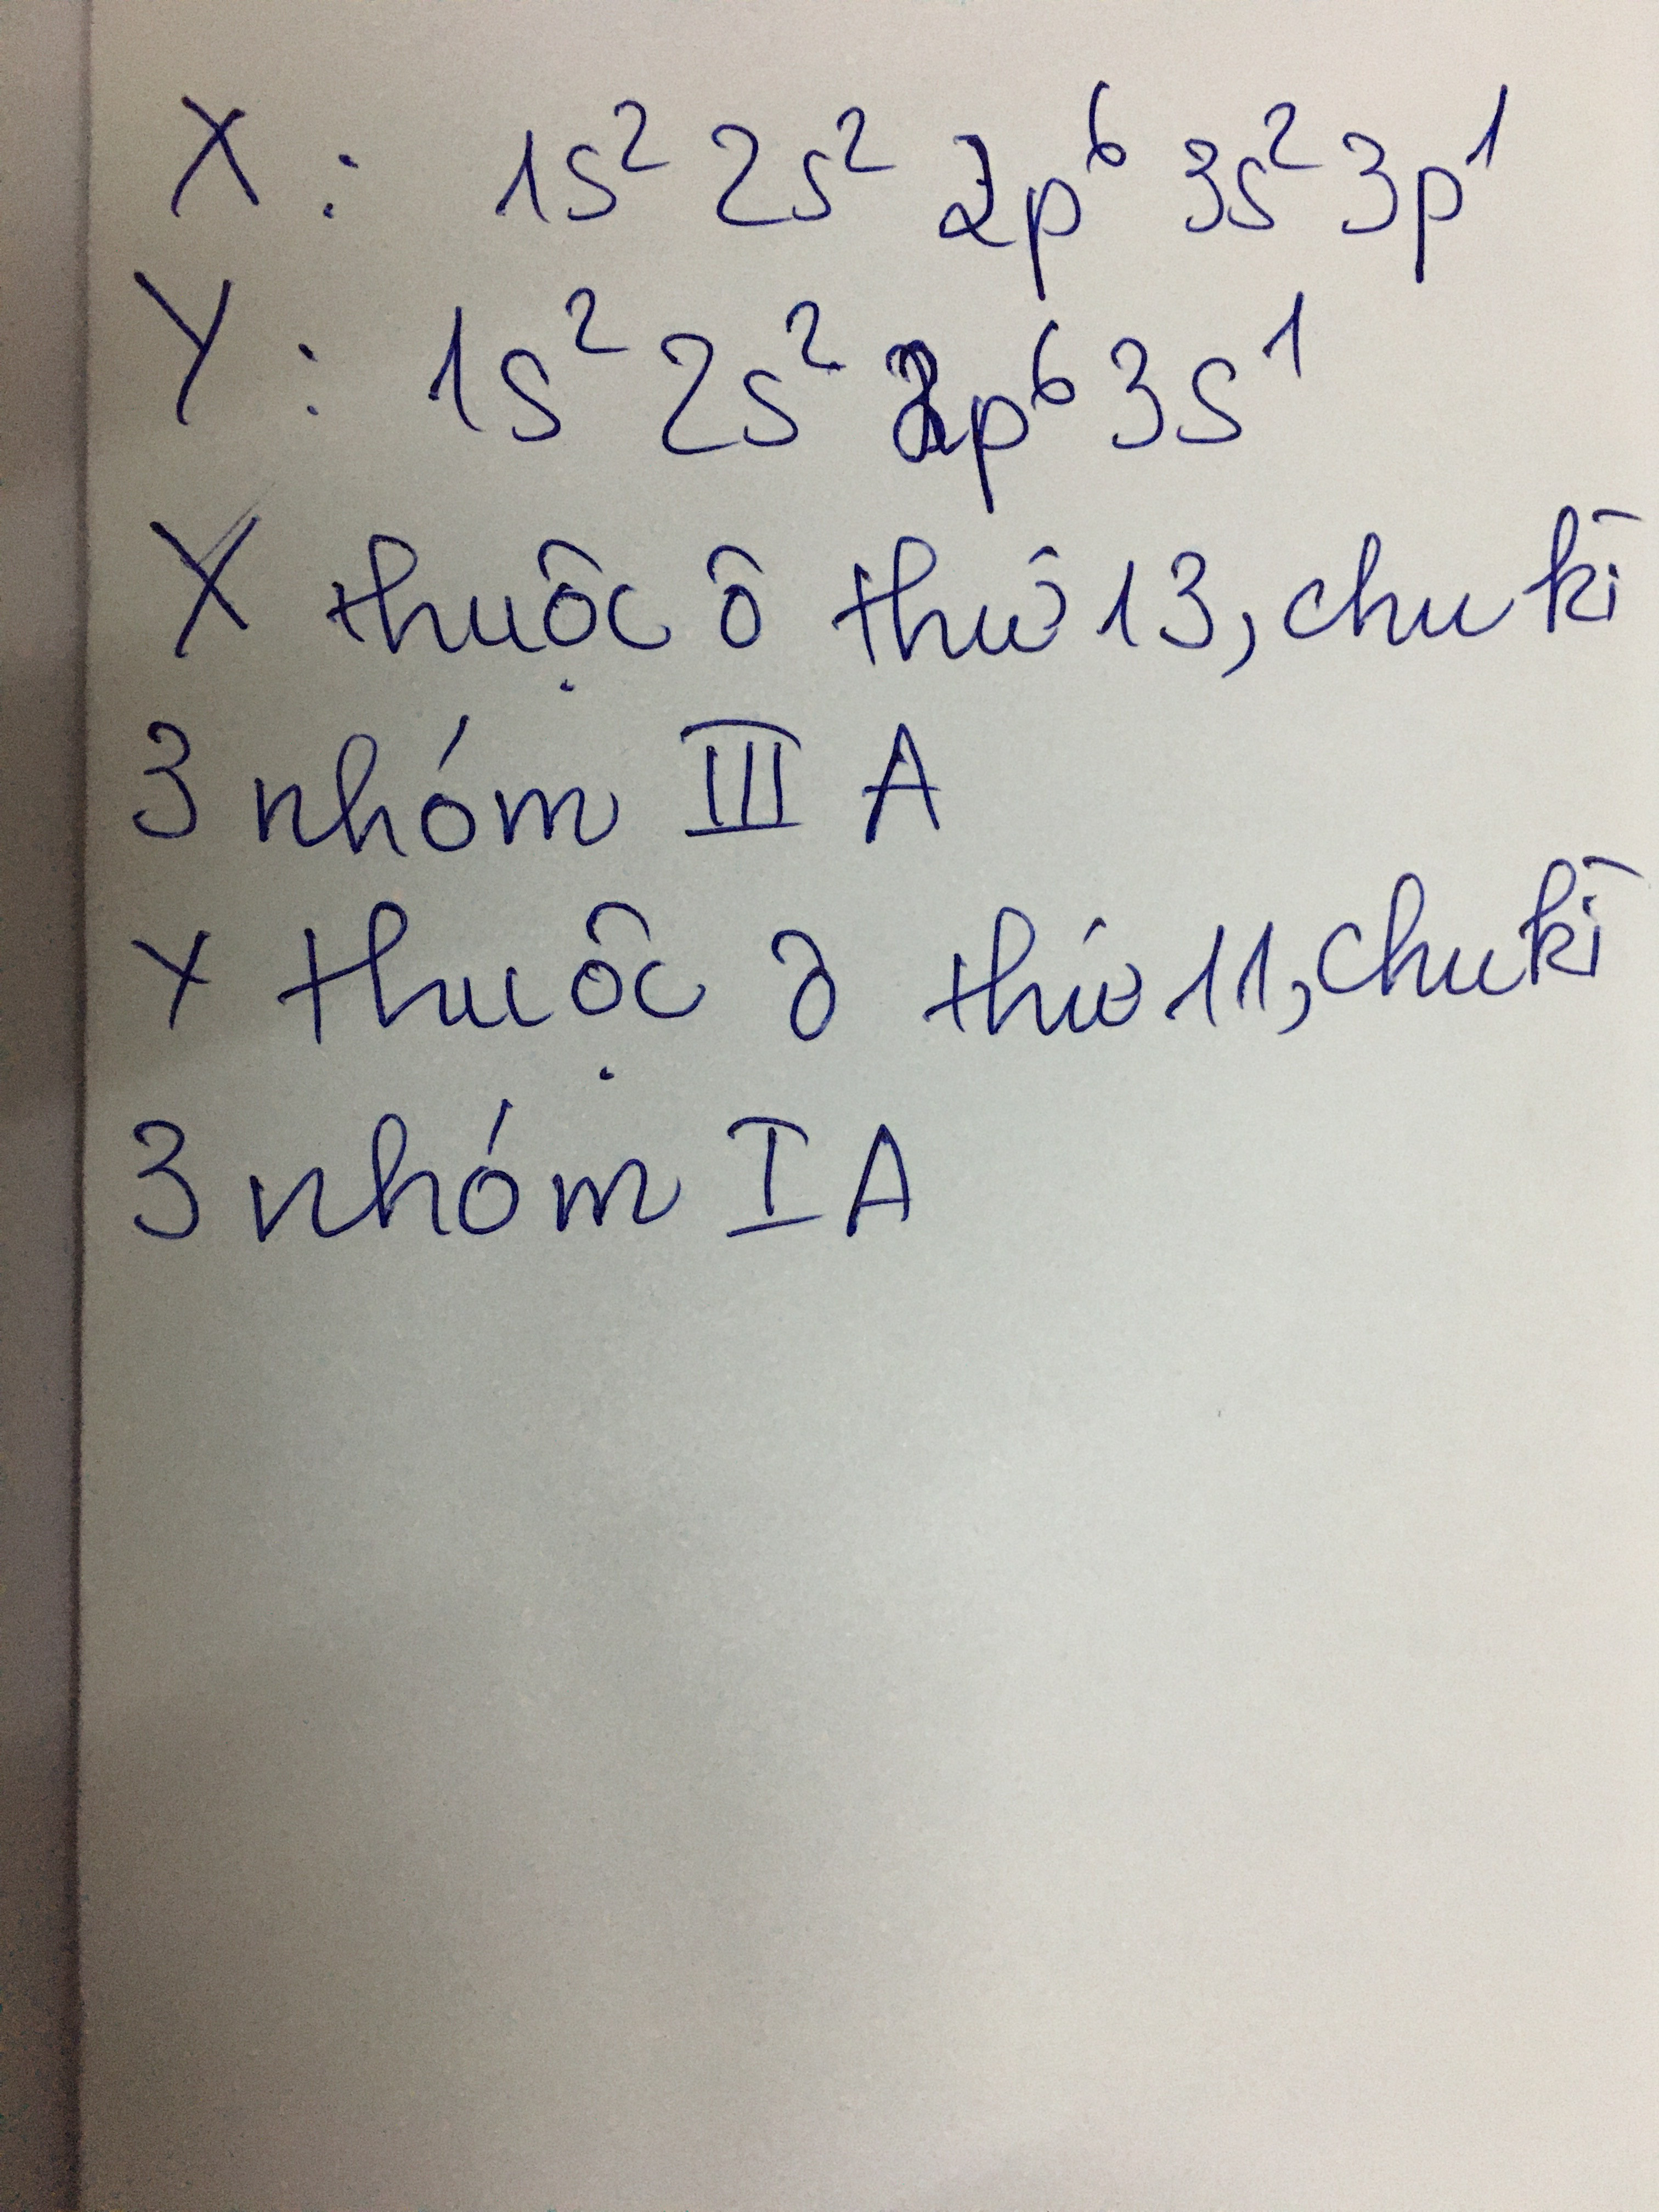 X : 1s² 2s² 2p⁶ 3s² 3p¹
Y : 1s² 2s² 2p⁶ 3s¹
X thuộc ô thứ 13, chu kì
3 nhóm III A
Y thuộc ô thứ 11, chu kì
3 nhóm I A